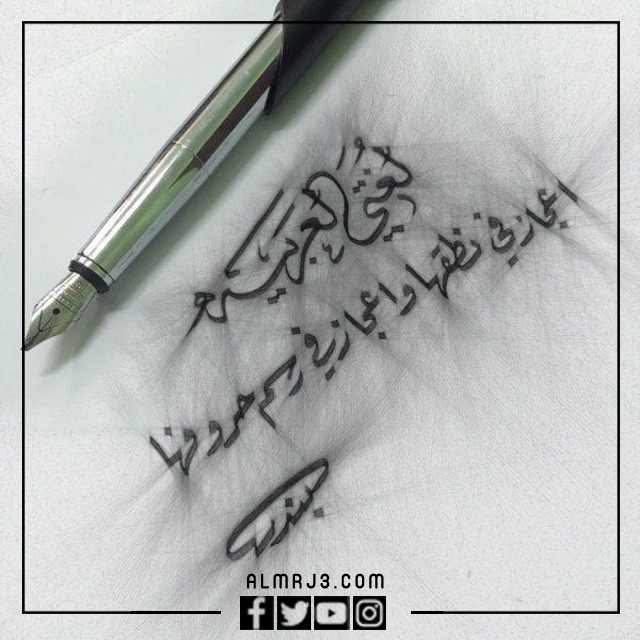 لغتي العربية
إعجاز في نطقها وإعجاز في رسم حروفها
ALMRJ3.COM